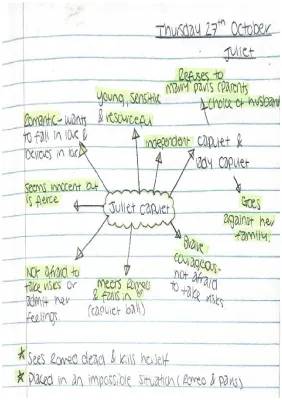 Thursday 27th October
Juliet
Refuses to
marry paris (parents
choice of husband
Young, sensitive
& resourceful
Romantic - wants
to fall in love &
believes in love
independent
capulet &
lady capulet
Seems innocent but
is fierce
Juliet Capulet
Goes
against her
family.
Brave
courageous -
not afraid
to take risks
Not afraid to
take risks or
admit her
feelings.
meets Romeo
& falls in
(capulet ball)
* Sees Romeo dead & kills herself
* Placed in an impossible situation (Romeo & Paris)